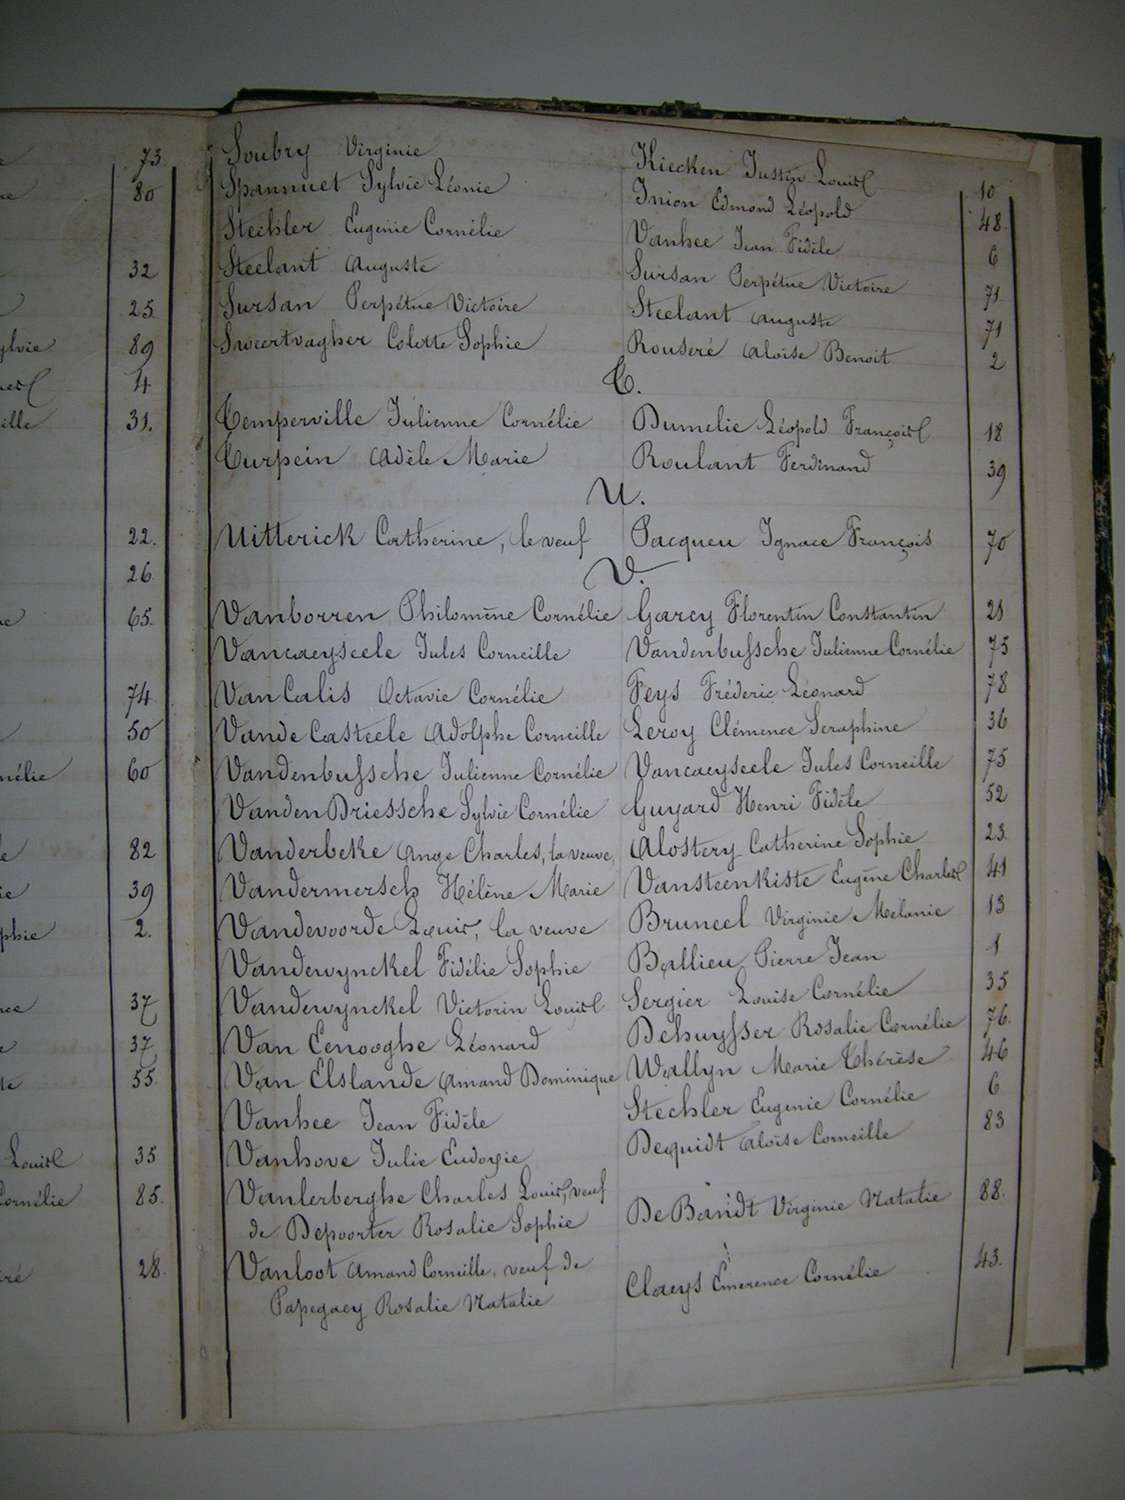 73
80
32
25
ylvie 89
4
ille 31.
22.
26
65.
74
50
nélie 60
82
39
phie 2.
37
37
55
Louis 35
Cornélie 85.
28.
Soubry Virginie Kiecken Justin Louis 10
Spannuet Sylvie Léonie Inion Edmond Léopold 48.
Stechler Eugénie Cornélie Vanhee Jean Fidèle 6
Steelant Auguste Sursan Perpétue Victoire 71
Sursan Perpétue Victoire Steelant Auguste 71
Swertvagher Colette Sophie Rouseré Aloïse Benoit 2
T.
Temperville Julienne Cornélie Dumelie Léopold François 18
Turpein Adèle Marie Roulant Ferdinand 39
U.
Uitterick Catherine, le veuf Pacqueu Ignace François 70
V.
Vanborren Philomène Cornélie Garcy Florentin Constantin 21
Vancaeyseele Jules Corneille Vandenbussche Julienne Cornélie 75
Van Calis Octavie Cornélie Feys Fréderic Léonard 78
Vande Casteele Adolphe Corneille Leroy Clémence Seraphine 36
Vandenbussche Julienne Cornélie Vancaeyseele Jules Corneille 75
Vanden Driessche Sylvie Cornélie Guyard Henri Fidèle 52
Vanderbeke Ange Charles, la veuve, Alostery Catherine Sophie 23.
Vandermersch Hélène Marie Vansteenkiste Eugène Charles 41
Vandevoorde Louis, la veuve Bruneel Virginie Melanie 13
Vandewynckel Fidélie Sophie Ballieu Pierre Jean 1
Vandewynckel Victorin Louis Sergier Louise Cornélie 35
Van Eenooghe Léonard Dehuysser Rosalie Cornélie 76.
Van Elslande Amand Dominique Wallyn Marie Thérèse 46
Vanhee Jean Fidèle Stechler Eugenie Cornélie 6
Vanhove Julie Eudoxie Dequidt Aloïse Corneille 83
Vanlerberghe Charles Louis, veuf
de Depoorter Rosalie Sophie De Bandt Virginie Natalie 88.
Vanloot Amand Corneille, veuf de
Papegaey Rosalie Natalie Claeys Émerence Cornélie 43.